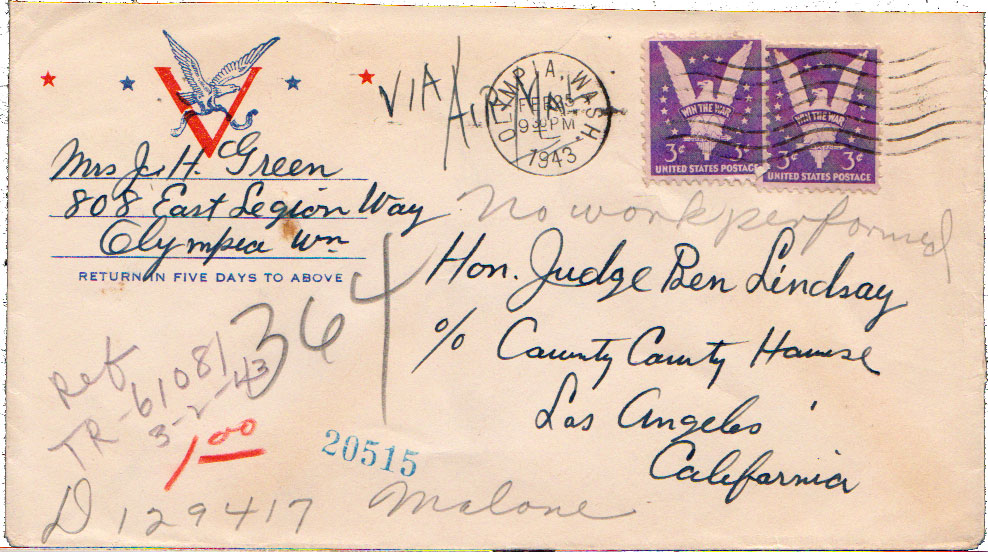 Mrs J. H. Green
808 East Legion Way
Olympia Wn
RETURN IN FIVE DAYS TO ABOVE
VIA AIR MAIL
OLYMPIA, WASH.
FEB 25
9 30 PM
1943
WIN THE WAR
3¢ 3¢
UNITED STATES POSTAGE
WIN THE WAR
3¢ 3¢
UNITED STATES POSTAGE
No work performed
Hon. Judge Ben Lindsay
c/o County County House
Los Angeles
California
364
Ref
TR-61081
3-2-43
1.00
20515
D 129417 Malone